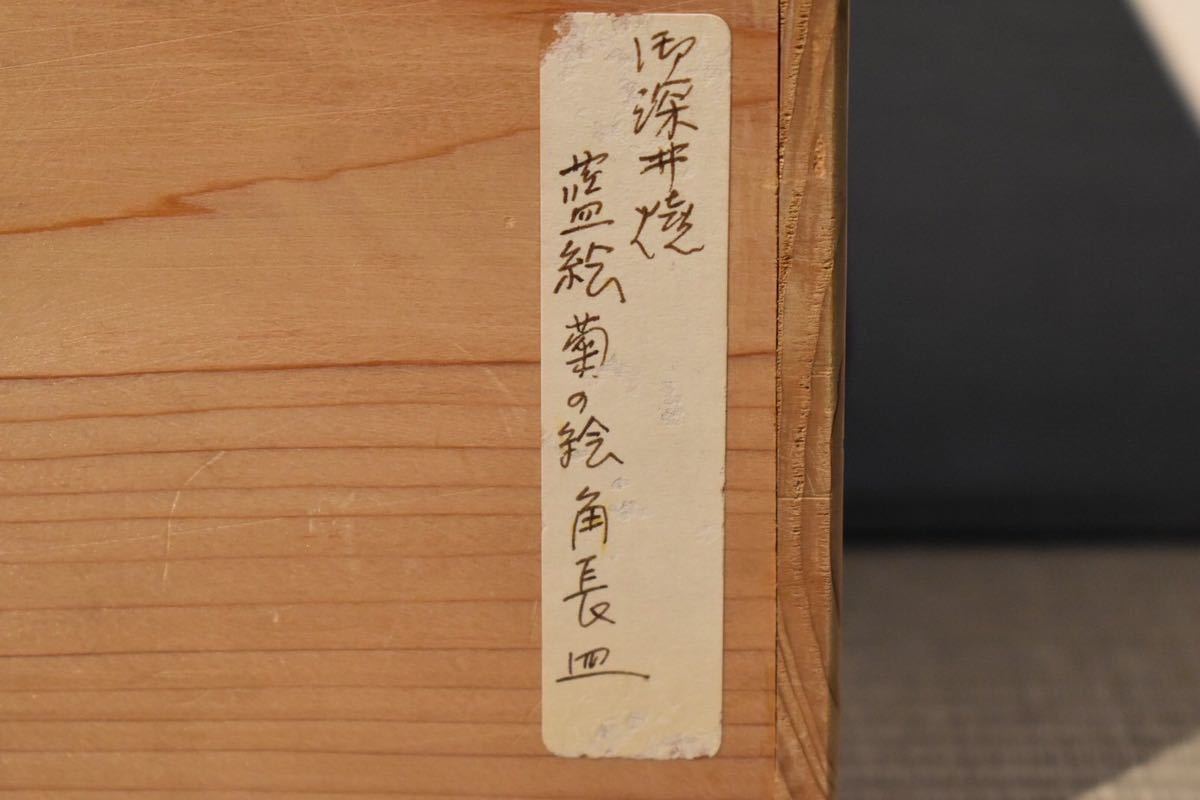 御深井焼
藍絵菊の絵角長皿